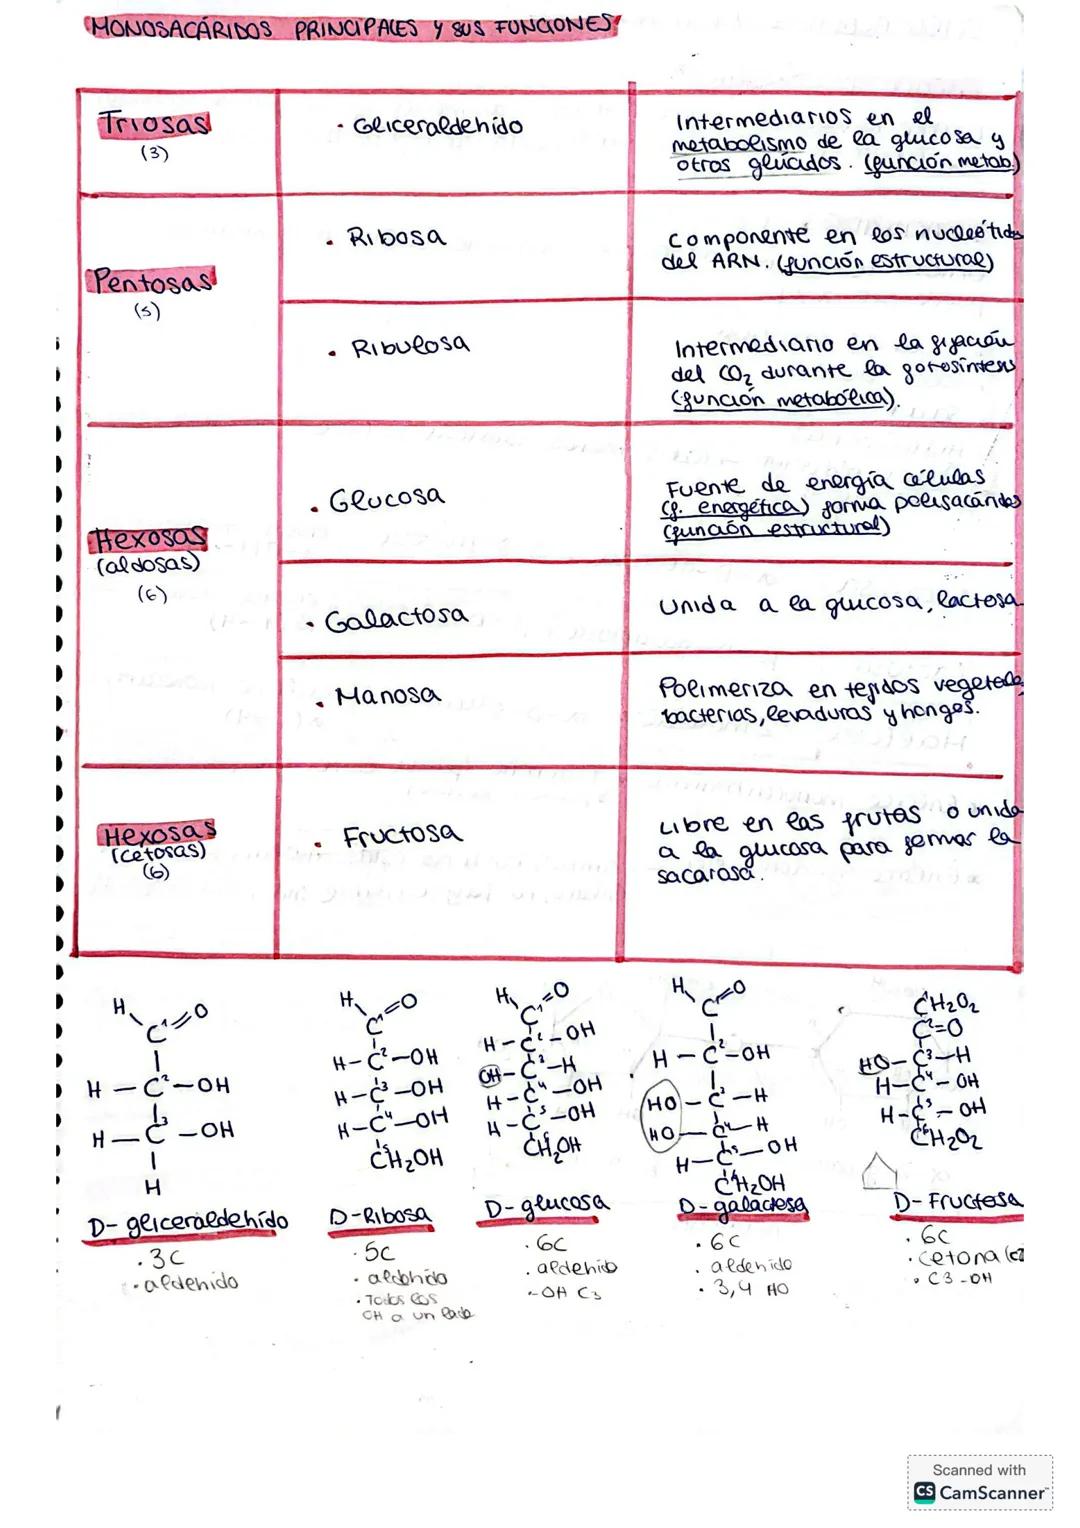 MONOSACÁRIDOS PRINCIPALES Y SUS FUNCIONES
Triosas
(3)
· Gliceraldehido
Intermediarios en el
metabolismo de la glucosa y
otros glúcidos. (función metab.)
Pentosas
(5)
· Ribosa
componente en los nucleótidos
del ARN. (función estructural)
· Ribulosa
Intermediario en la fijación
del CO2 durante la fotosíntesis
(función metabólica).
Hexosas
(aldosas)
(6)
· Glucosa
Fuente de energía células
(f. energética) forma polisacáridos
(función estructural)
· Galactosa
Unida a la glucosa, lactosa
· Manosa
Polimeriza en tejidos vegetale
bacterias, levaduras y hongos.
Hexosas
(cetosas)
(6)
· Fructosa
Libre en las frutas o unida
a la glucosa para formar la
sacarosa.
H
C1=O
H - C2 - OH
H - C3 - OH
H
D- gliceraldehído
· 3C
· aldehido
H
C1=O
H - C2 - OH
H - C3 - OH
H - C4 - OH
C5H2OH
D-Ribosa
· 5C
· aldehido
· Todos los
OH a un lado
H
C1=O
H - C2 - OH
OH - C3 - H
H - C4 - OH
H - C5 - OH
C6H2OH
D-glucosa
· 6C
· aldehido
- OH C3
H
C1=O
H - C2 - OH
HO - C3 - H
HO - C4 - H
H - C5 - OH
C6H2OH
D-galactosa
· 6C
· aldehido
· 3,4 HO
C1H2O2
C2=O
HO - C3 - H
H - C4 - OH
H - C5 - OH
C6H2O2
D-Fructosa
· 6C
· cetona
· C3-OH
Scanned with
CS CamScanner